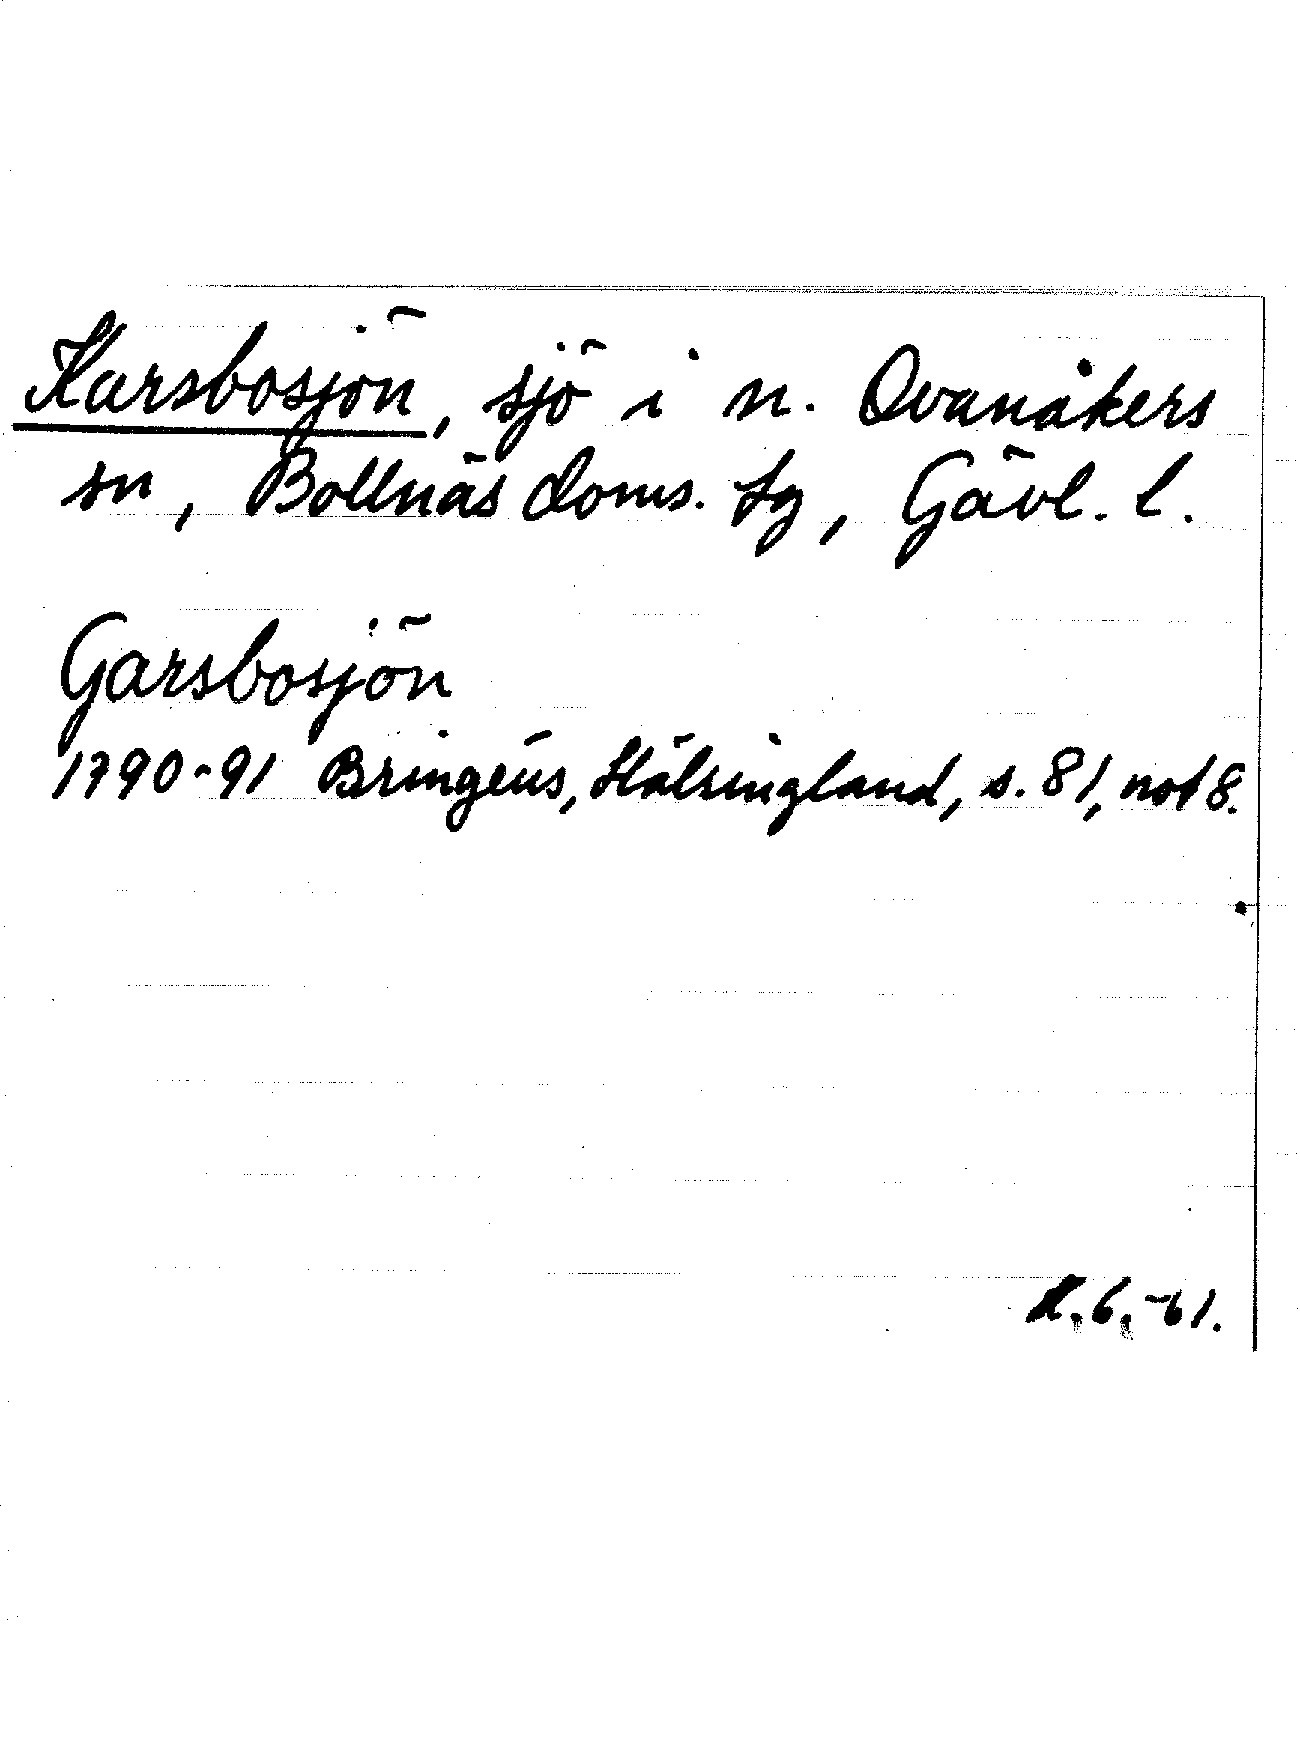 Karsbosjön, sjö i n. Ovanåkers
sn, Bollnäs doms. sg, Gävl. l.
Garsbosjön
1790-91 Bringéus, Hälsingland, s. 81, not 8.
6.-61.